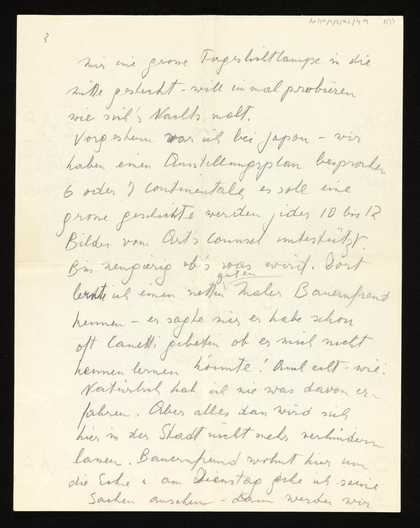 3
mir eine grosse Tageslichtlampe in die
Mitte gesteckt - will einmal probieren
wie sich's Nachts malt.
Vorgestern war ich bei Japon - wir
haben einen Ausstellungsplan besprochen
6 oder 7 Continentale, es soll eine
grosse geschichte werden, jedes 10 bis 12
Bilder vom Arts Counsel unterstützt.
Bin neugierig ob's was wird. Dort
lernte ich einen netten guten Maler Bauernfreund
kennen - er sagte mir er habe schon
oft Canetti gebeten ob er mich nicht
kennen lernen könnte!
Natürlich hab ich nie was davon er-
fahren. Aber alles das wird sich
hier in der Stadt nicht mehr verhindern
lassen. Bauernfreund wohnt hier um
die Ecke & am Dienstag gehe ich seine
Sachen ansehen - dann werden wir